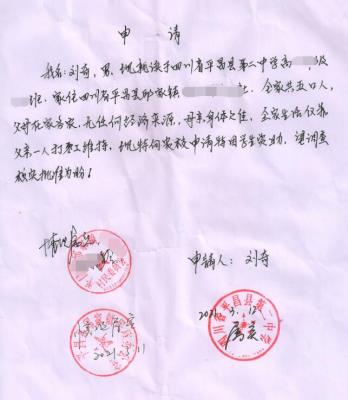 申 请
我名:刘奇,男,现就读于四川省平昌县第二中学高 级
班,家住四川省平昌县邱家镇 社,全家共五口人,
父母在家务农,无任何经济来源,母亲身体欠佳,全家生活仅靠
父亲一人打工维持,现特向学校申请特困学生资助,望调查
核实批准为盼!
情况属实
村民委员会
申请人:刘奇
2021.3.12
四川省平昌县第二中学
属实
情况属实
2021.3.11